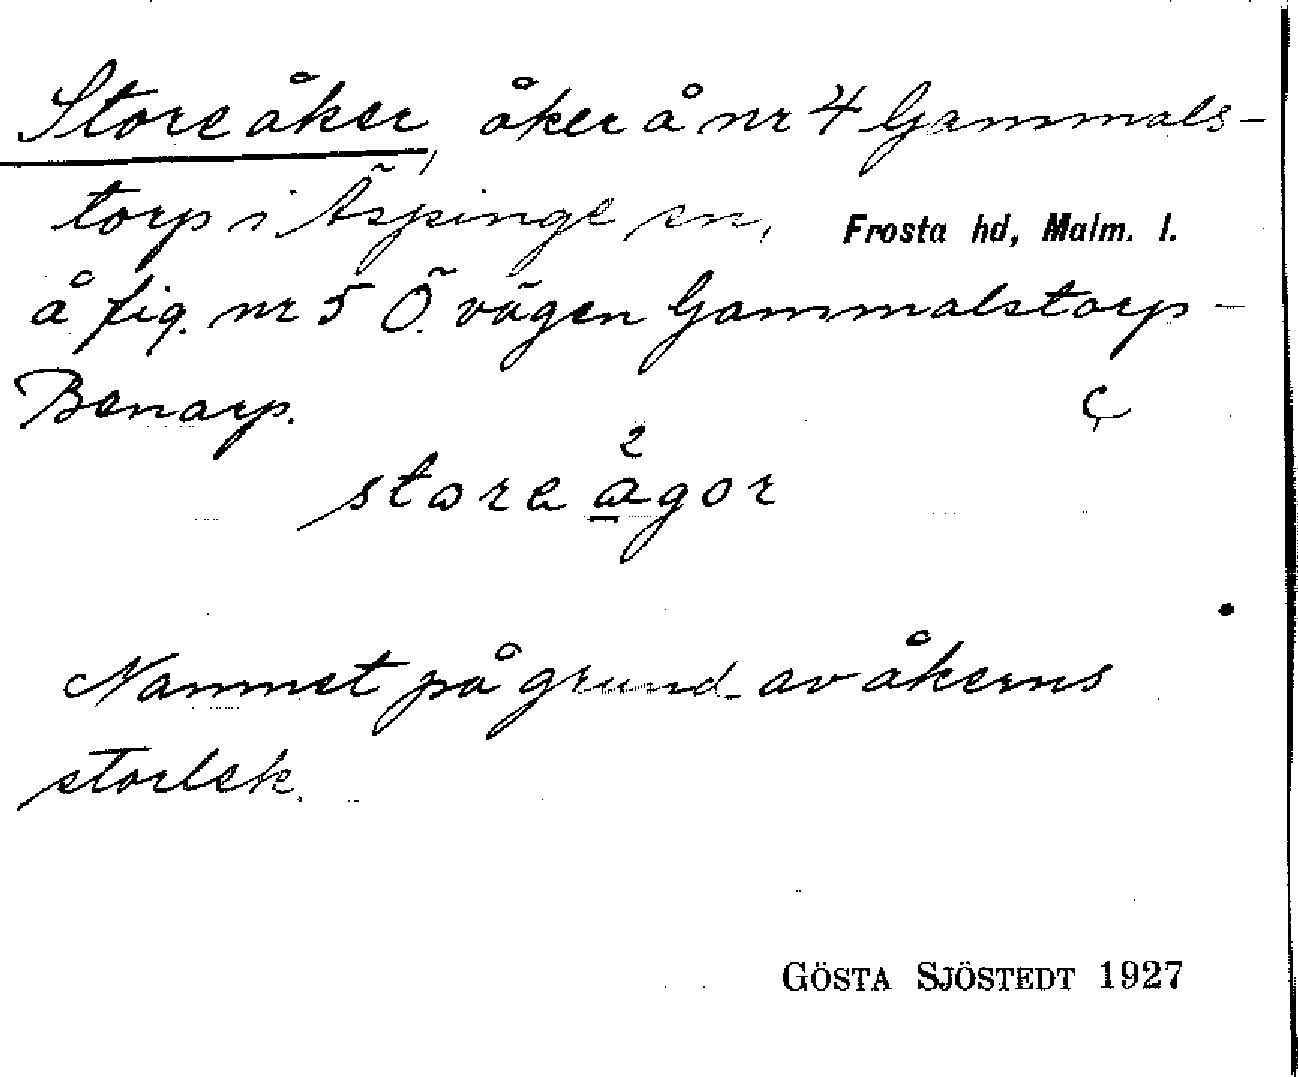 Store åker, åker å nr 4 Gammals-
torp i Äspinge sn, Frosta hd, Malm. l.
å fig. nr 5 Ö. vägen Gammalstorp-
Benarp. Ç
store ågor
Namnet på grund av åkerns
storlek.
GÖSTA SJÖSTEDT 1927